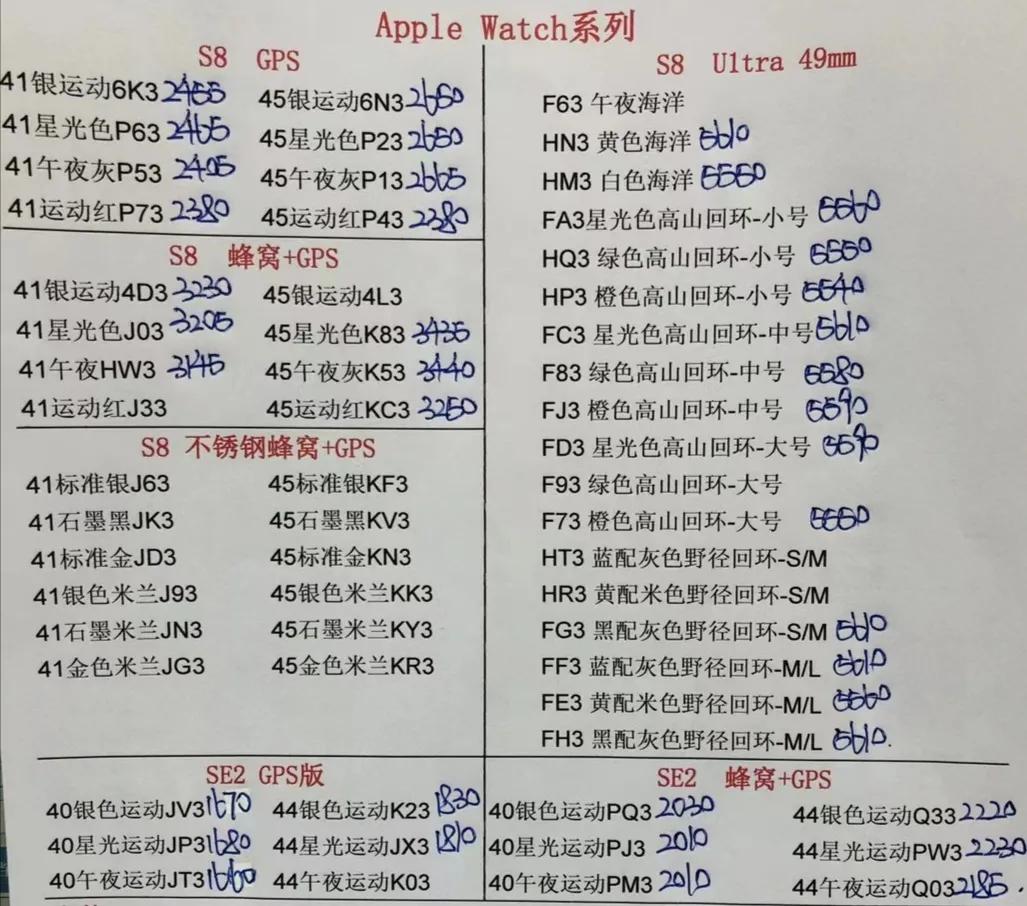 Apple Watch系列
S8 GPS
41银运动6K3 2455 45银运动6N3 2650
41星光色P63 2465 45星光色P23 2650
41午夜灰P53 2405 45午夜灰P13 2665
41运动红P73 2380 45运动红P43 2380
S8 蜂窝+GPS
41银运动4D3 3230 45银运动4L3
41星光色J03 3205 45星光色K83 3435
41午夜HW3 3145 45午夜灰K53 3440
41运动红J33 45运动红KC3 3250
S8 不锈钢蜂窝+GPS
41标准银J63 45标准银KF3
41石墨黑JK3 45石墨黑KV3
41标准金JD3 45标准金KN3
41银色米兰J93 45银色米兰KK3
41石墨米兰JN3 45石墨米兰KY3
41金色米兰JG3 45金色米兰KR3
S8 Ultra 49mm
F63 午夜海洋
HN3 黄色海洋 5610
HM3 白色海洋 5550
FA3星光色高山回环-小号 5560
HQ3 绿色高山回环-小号 5550
HP3 橙色高山回环-小号 5540
FC3 星光色高山回环-中号 5610
F83 绿色高山回环-中号 5580
FJ3 橙色高山回环-中号 5590
FD3 星光色高山回环-大号 5590
F93 绿色高山回环-大号
F73 橙色高山回环-大号 5550
HT3 蓝配灰色野径回环-S/M
HR3 黄配米色野径回环-S/M
FG3 黑配灰色野径回环-S/M 5610
FF3 蓝配灰色野径回环-M/L 5610
FE3 黄配米色野径回环-M/L 5560
FH3 黑配灰色野径回环-M/L 5610.
SE2 GPS版
40银色运动JV3 1670 44银色运动K23 1830
40星光运动JP3 1680 44星光运动JX3 1810
40午夜运动JT3 1660 44午夜运动K03
SE2 蜂窝+GPS
40银色运动PQ3 2030 44银色运动Q33 2220
40星光运动PJ3 2010 44星光运动PW3 2230
40午夜运动PM3 2010 44午夜运动Q03 2185.